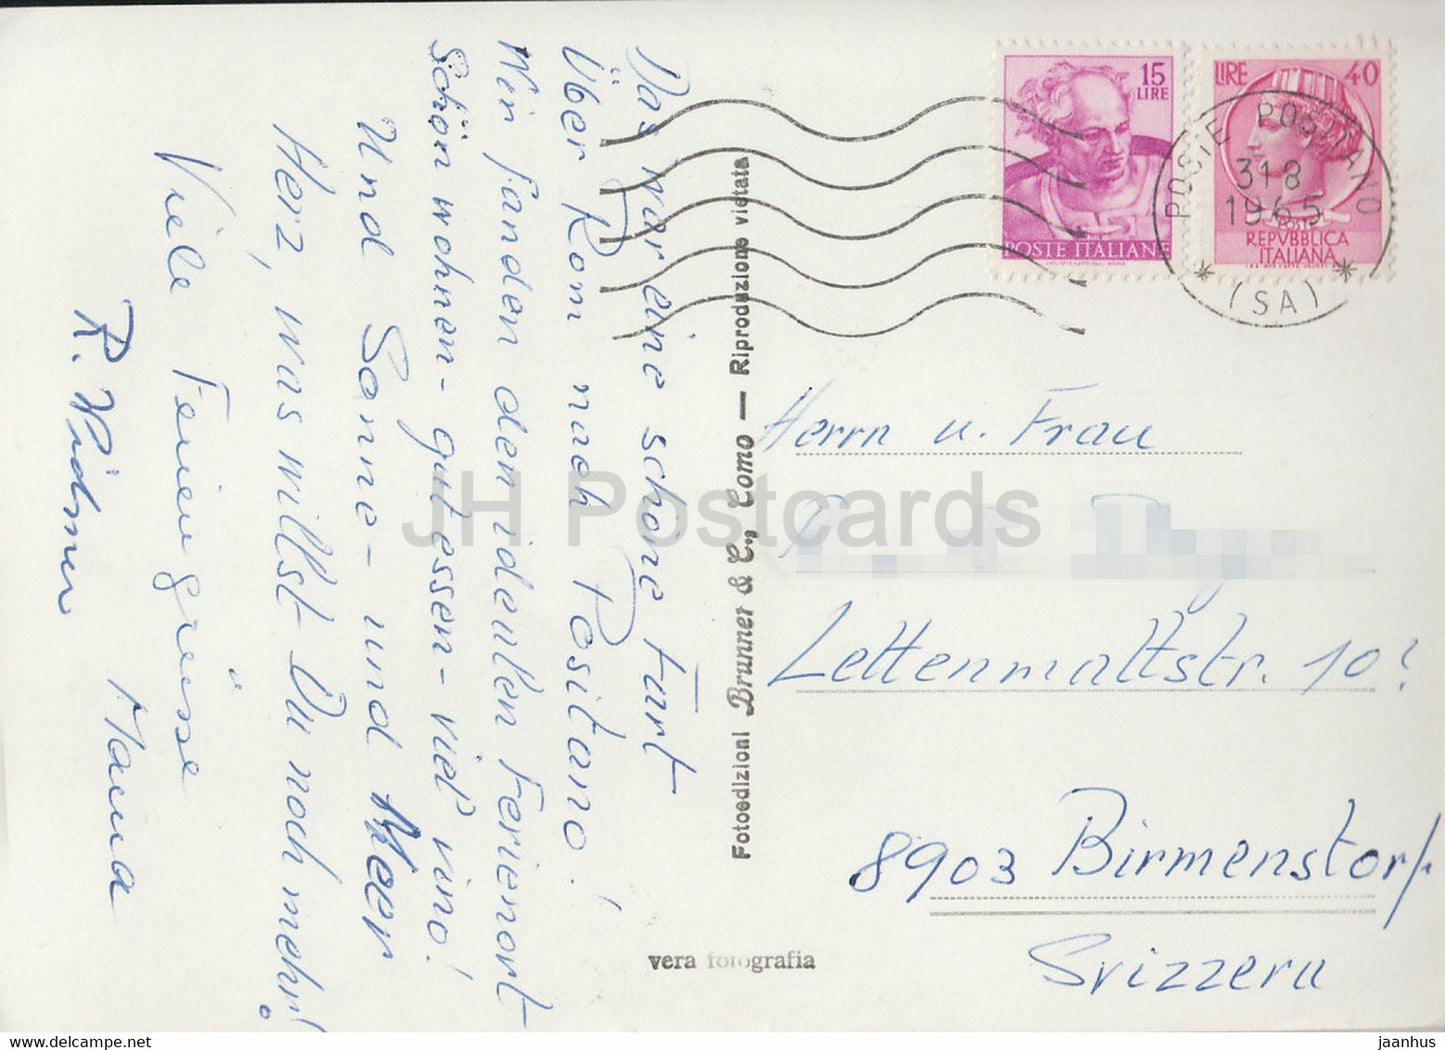 Das war eine schöne Fart
Über Rom nach Positano!
Wir fanden den idealen Ferienort
Schön wohnen - gut essen - viel vino!
Und Sonne - und Meer
Herz, was willst Du noch mehr!
Viele Feriengrüsse
R. Widmer
Fotoedizioni Brunner & C., Como — Riproduzione vietata
vera fotografia
15
LIRE
POSTE ITALIANE
LIRE 40
REPVBBLICA
ITALIANA
POSTE POSITANO
31 8
1965
(SA)
Herrn u. Frau
Lettenmattstr. 10
8903 Birmenstorf
Svizzera
JH Postcards
jaanhus © www.delcampe.net